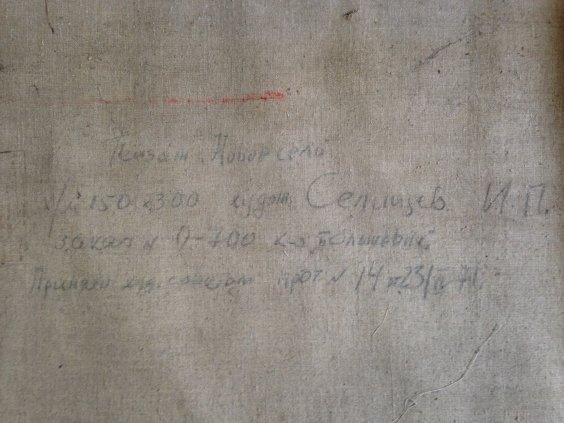 Пейзаж "Новое село"
х/м 150 х 300 худож. Селищев И.П.
заказ № 0-700 к-з "Большевик"
Принят худ. советом прот № 14 23/IV 71